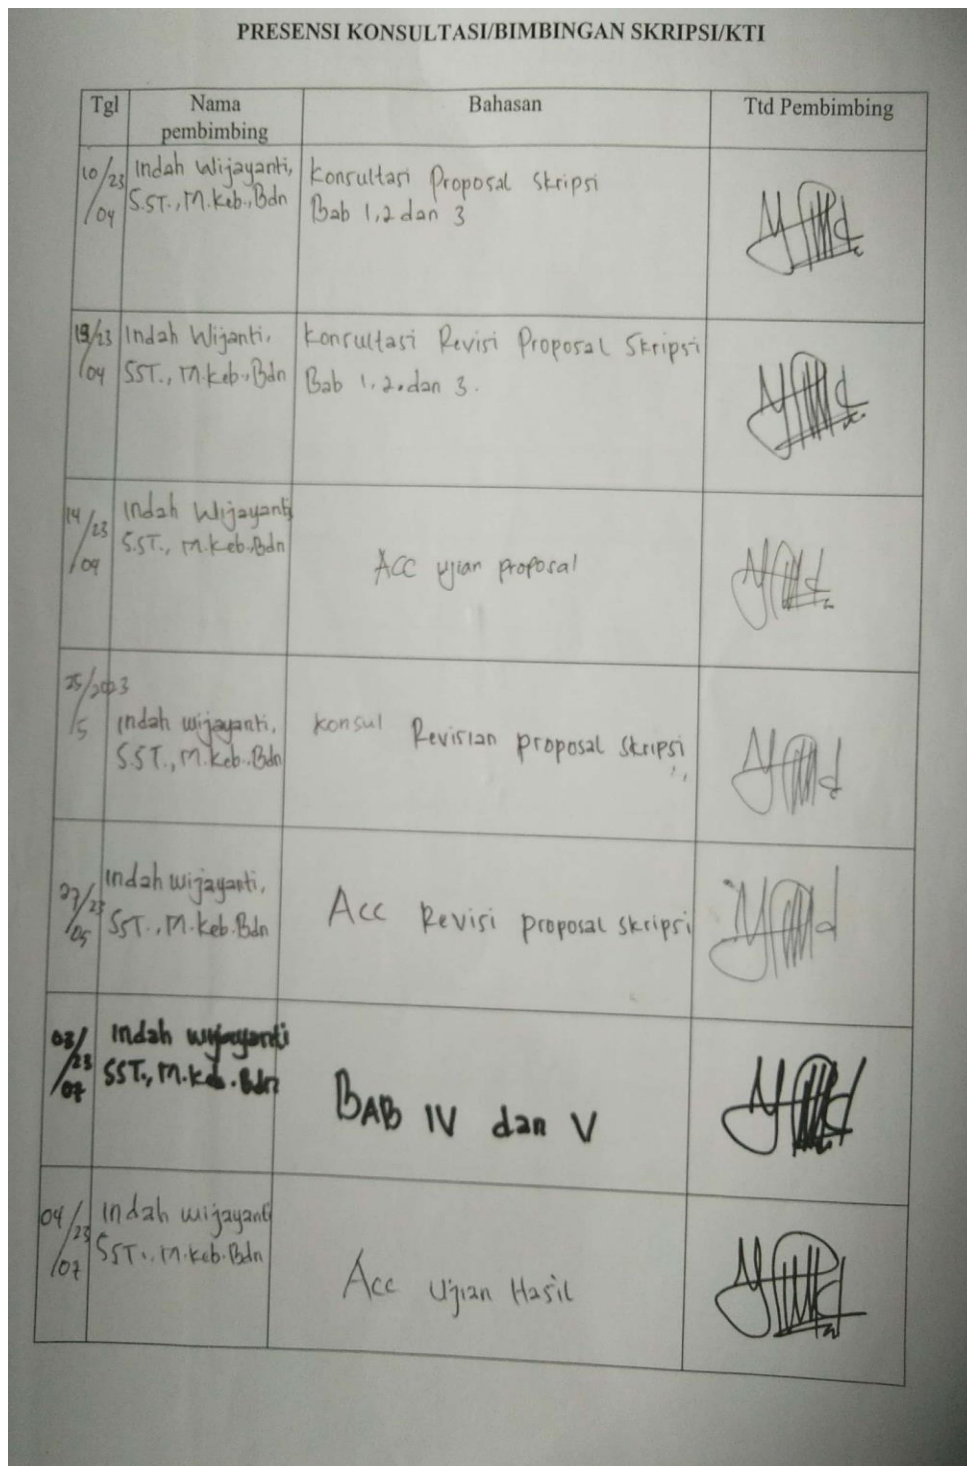 PRESENSI KONSULTASI/BIMBINGAN SKRIPSI/KTI
Tgl
Nama
pembimbing
Bahasan
Ttd Pembimbing
10/23
/04
Indah Wijayanti,
S.ST., M.Keb., Bdn
Konsultasi Proposal Skripsi
Bab 1, 2 dan 3
/23
/04
Indah Wijanti,
SST., M.Keb., Bdn
Konsultasi Revisi Proposal Skripsi
Bab 1, 2. dan 3.
14/23
/04
Indah Wijayanti
S.ST., M.Keb.,Bdn
ACC Ujian proposal
25/2023
/5
Indah wijayanti,
S.ST., M.Keb.,Bdn
Konsul Revisian proposal skripsi
27/23
/05
Indah wijayanti,
SST., M.Keb.Bdn
Acc Revisi proposal skripsi
03/23
/07
Indah wijayanti
SST., M.Keb.Bdn
BAB IV dan V
04/23
/07
Indah wijayanti
SST., M.Keb.Bdn
Acc Ujian Hasil